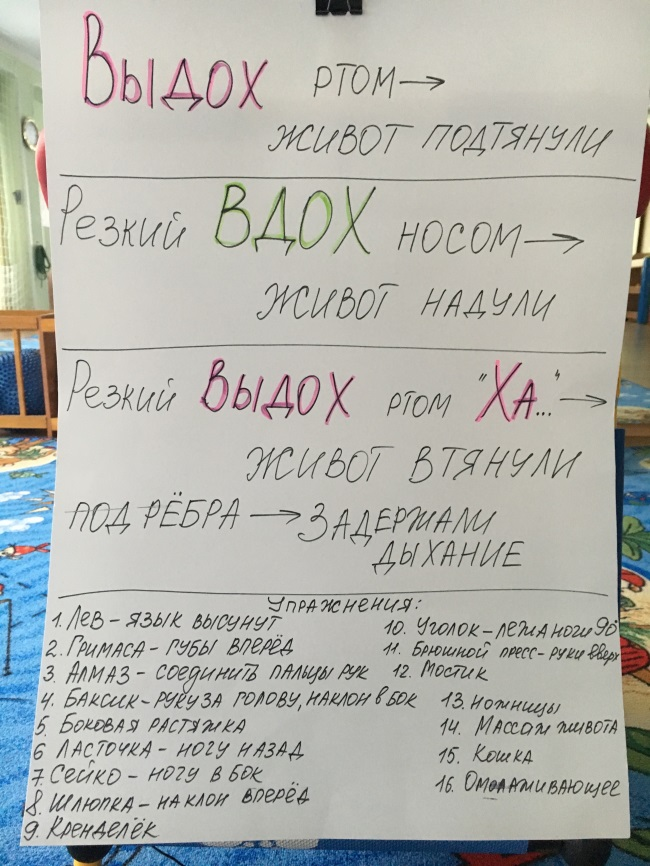 Выдох ртом →
живот подтянули
Резкий ВДОХ носом →
живот надули
Резкий ВЫДОХ ртом "Ха..." →
живот втянули
под рёбра → задержали
дыхание
Упражнения:
1. Лев – язык высунут
2. Гримаса – губы вперёд
3. Алмаз – соединить пальцы рук
4. Баксик – руку за голову, наклон в бок
5. Боковая растяжка
6 Ласточка – ногу назад
7. Сейко – ногу в бок
8. Шлюпка – наклон вперёд
9. Кренделёк
10. Уголок – лежа ноги 90°
11. Брюшной пресс – руки вверх
12. Мостик
13. Ножницы
14. Массаж живота
15. Кошка
16. Омолаживающее